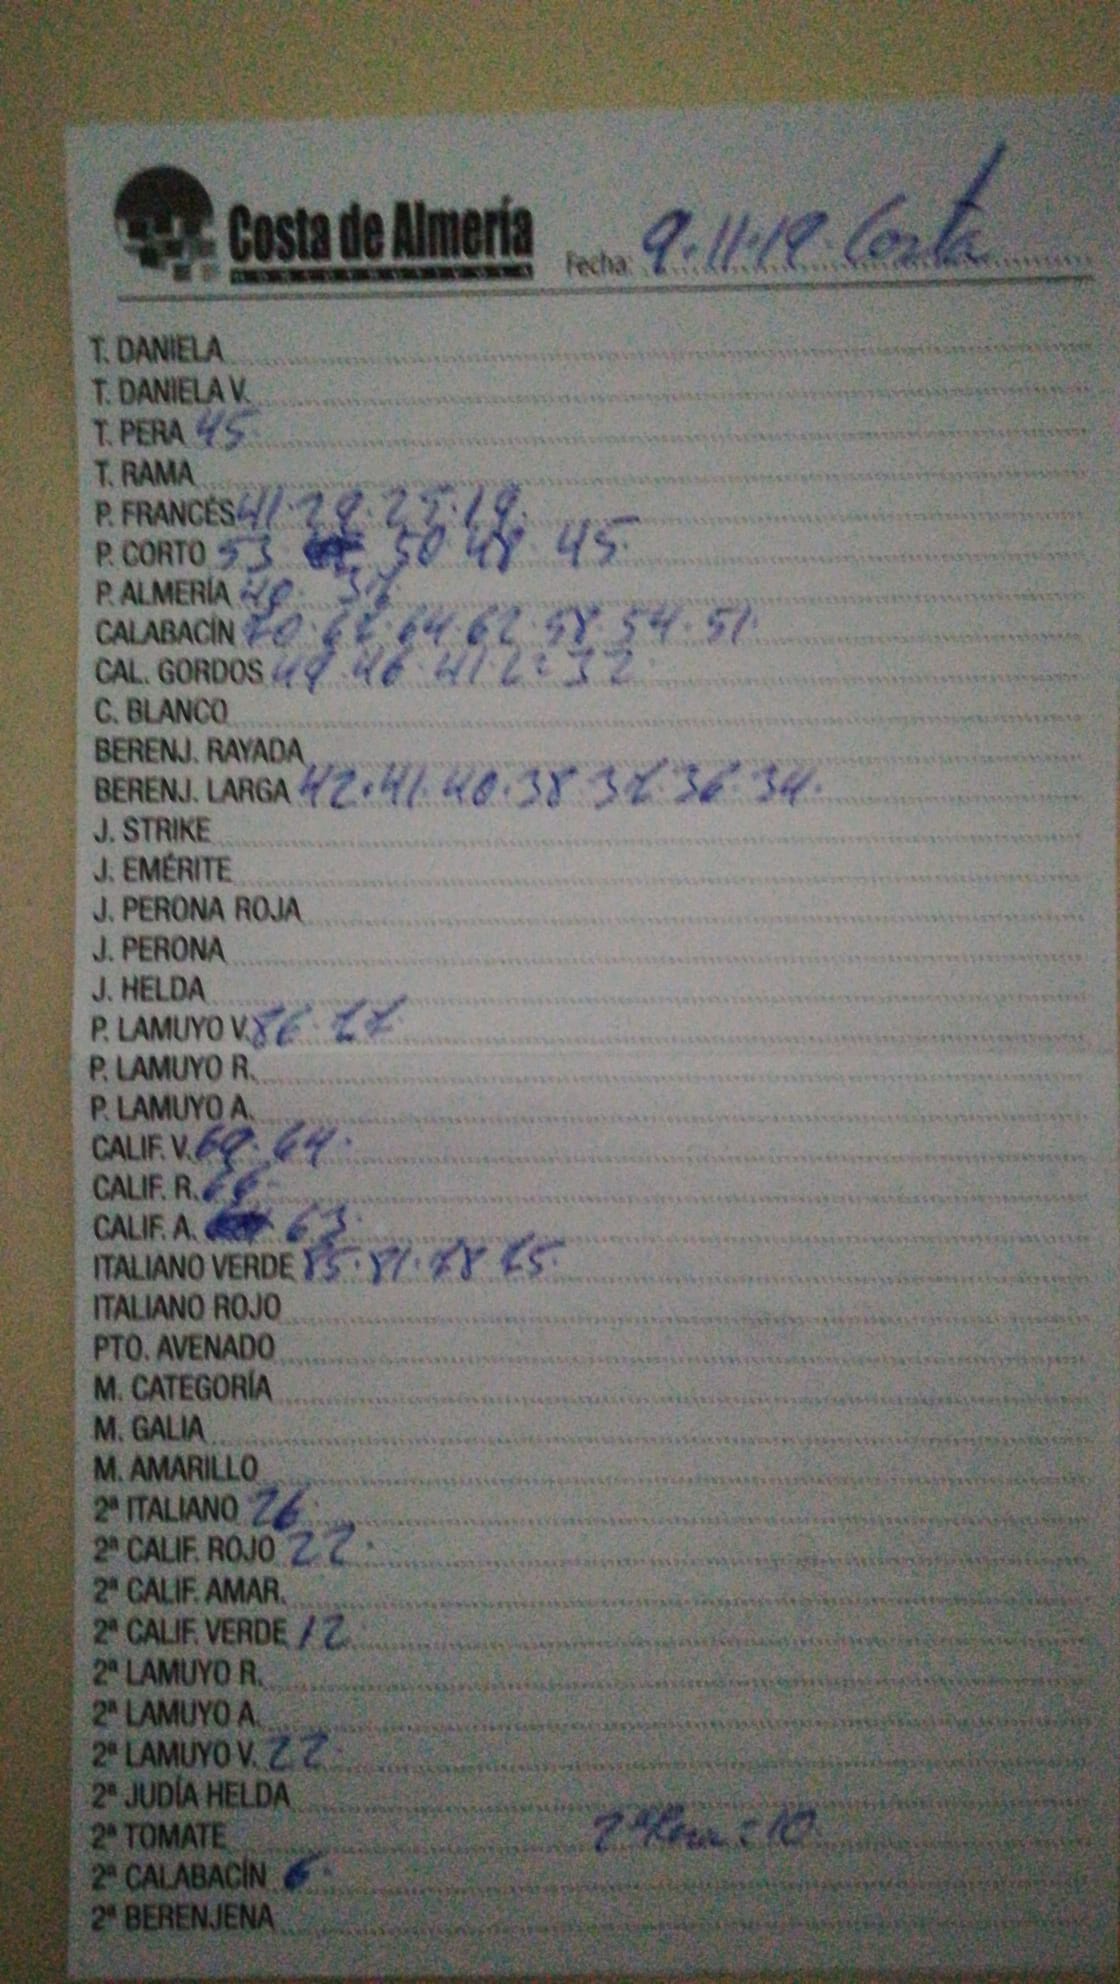 Costa de Almería
Fecha: 9.11.19. Costa
T. DANIELA
T. DANIELA V.
T. PERA 45
T. RAMA
P. FRANCÉS 41.29.25.19.
P. CORTO 53 50 48 45.
P. ALMERÍA 40. 37
CALABACÍN 70.67.64.62.58.54.51.
CAL. GORDOS 49.46.41 32
C. BLANCO
BERENJ. RAYADA
BERENJ. LARGA 42.41.40.38.37.36.34.
J. STRIKE
J. EMÉRITE
J. PERONA ROJA
J. PERONA
J. HELDA
P. LAMUYO V. 86. 77
P. LAMUYO R.
P. LAMUYO A.
CALIF. V. 69. 64.
CALIF. R.
CALIF. A. 63.
ITALIANO VERDE 85.81.78 75.
ITALIANO ROJO
PTO. AVENADO
M. CATEGORÍA
M. GALIA
M. AMARILLO
2ª ITALIANO 26
2ª CALIF. ROJO 22.
2ª CALIF. AMAR.
2ª CALIF. VERDE 12
2ª LAMUYO R.
2ª LAMUYO A.
2ª LAMUYO V. 22.
2ª JUDÍA HELDA
2ª TOMATE = 10.
2ª CALABACÍN 6.
2ª BERENJENA